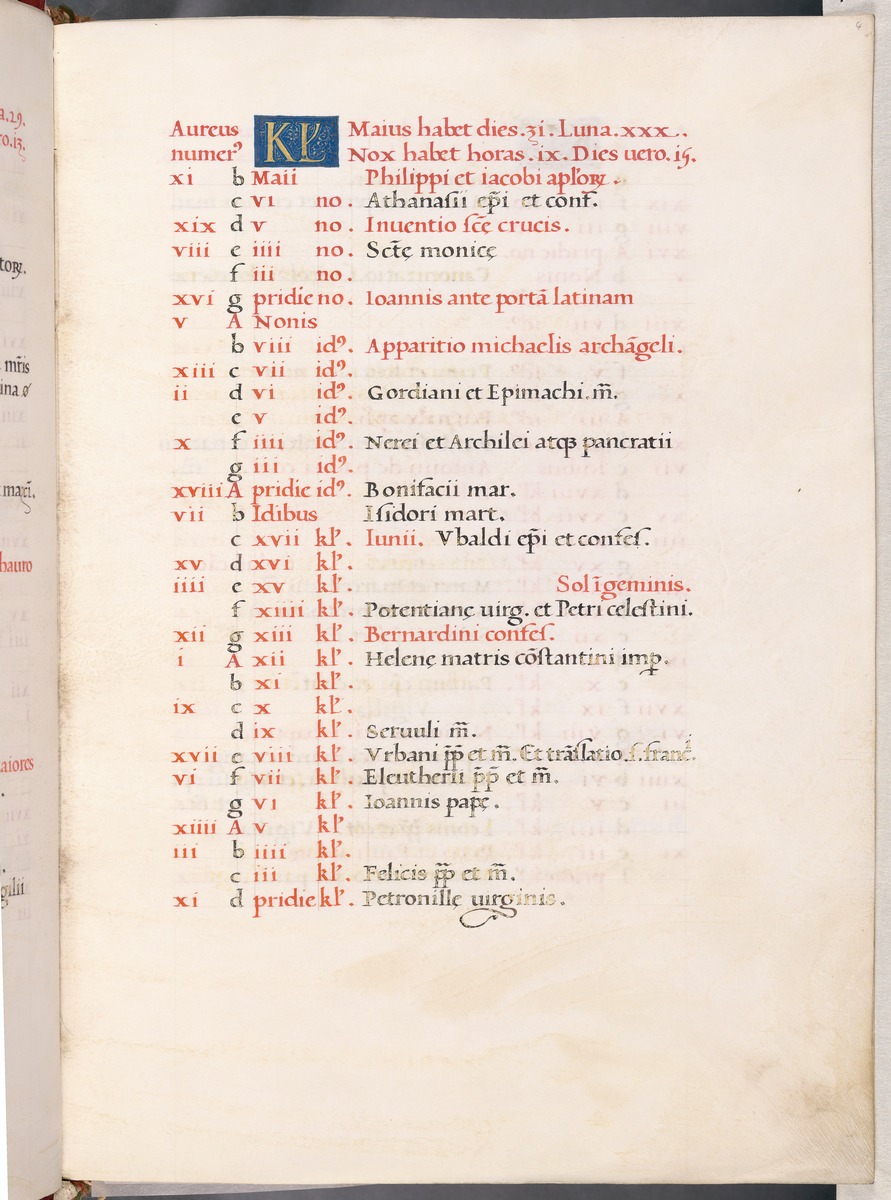 Aureus KL Maius habet dies .31. Luna .xxx.
numerꝰ Nox habet horas .ix. Dies uero .15.
xi b Maii Philippi et iacobi apl̃oꝝ.
c vi no. Athanasii ep̃i et conf̃.
xix d v no. Inuentio sc̃ę crucis.
viii e iiii no. Sct̃ę monicę
f iii no.
xvi g pridie no. Ioannis ante portã latinam
v A Nonis
b viii idꝰ. Apparitio michaelis archãgeli.
xiii c vii idꝰ.
ii d vi idꝰ. Gordiani et Epimachi. m̃.
e v idꝰ.
x f iiii idꝰ. Nerei et Archilei atqꝫ pancratii
g iii idꝰ.
xviii A pridie idꝰ. Bonifacii mar.
vii b Idibus Isidori mart.
c xvii kl̓. Iunii. Vbaldi ep̃i et confes.
xv d xvi kl̓.
iiii e xv kl̓. Sol ĩ geminis.
f xiiii kl̓. Potentianę uirg. et Petri celestini.
xii g xiii kl̓. Bernardini confes.
i A xii kl̓. Helenę matris cõstantini imp.
b xi kl̓.
ix c x kl̓.
d ix kl̓. Seruuli m̃.
xvii e viii kl̓. Vrbani pp̃ et m̃. Et trãslatio .s. franc̃.
vi f vii kl̓. Eleutherii pp̃ et m̃.
g vi kl̓. Ioannis papę.
xiiii A v kl̓.
iii b iiii kl̓.
c iii kl̓. Felicis pp̃ et m̃.
xi d pridie kl̓. Petronillę uirginis.